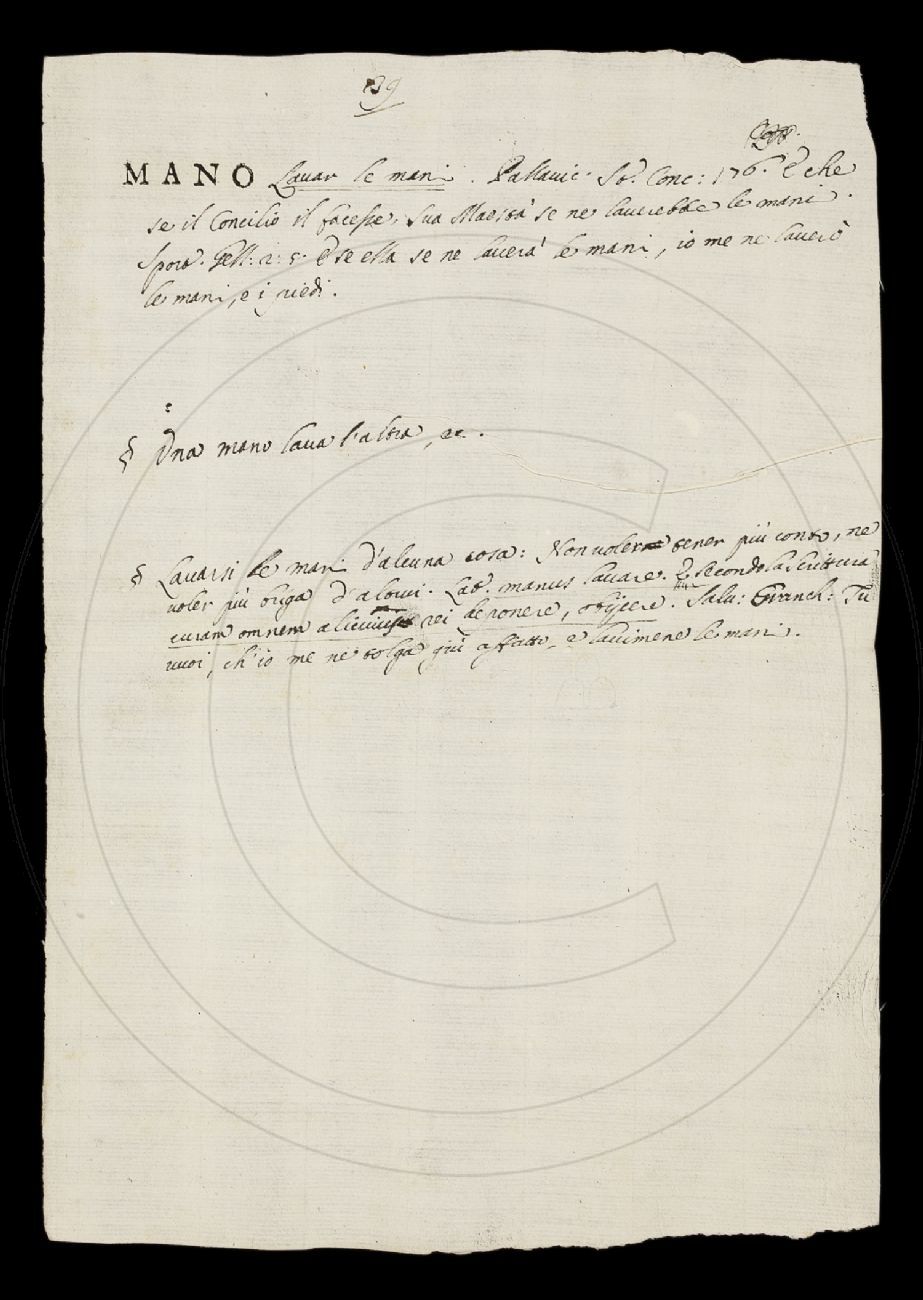 39
MANO Lavar le mani. Pallavic: St. Conc: 176. E che
se il Concilio il facesse, sua Maestà se ne laverebbe le mani.
Sporo. Gell: 2: 5. E se ella se ne laverà le mani, io me ne laverò
le mani, e i piedi.
§ Una mano lava l'altra, ec.
§ Lavarsi le mani d'alcuna cosa: Non voler tener più conto, ne
voler più briga d'altrui. Lat. manus lavare. E secondo la Scrittura
curam omnem alicuius rei deponere, abijcere. Salv: Granch: Tu
vuoi, ch'io me ne tolga giù affatto, e lavimene le mani.